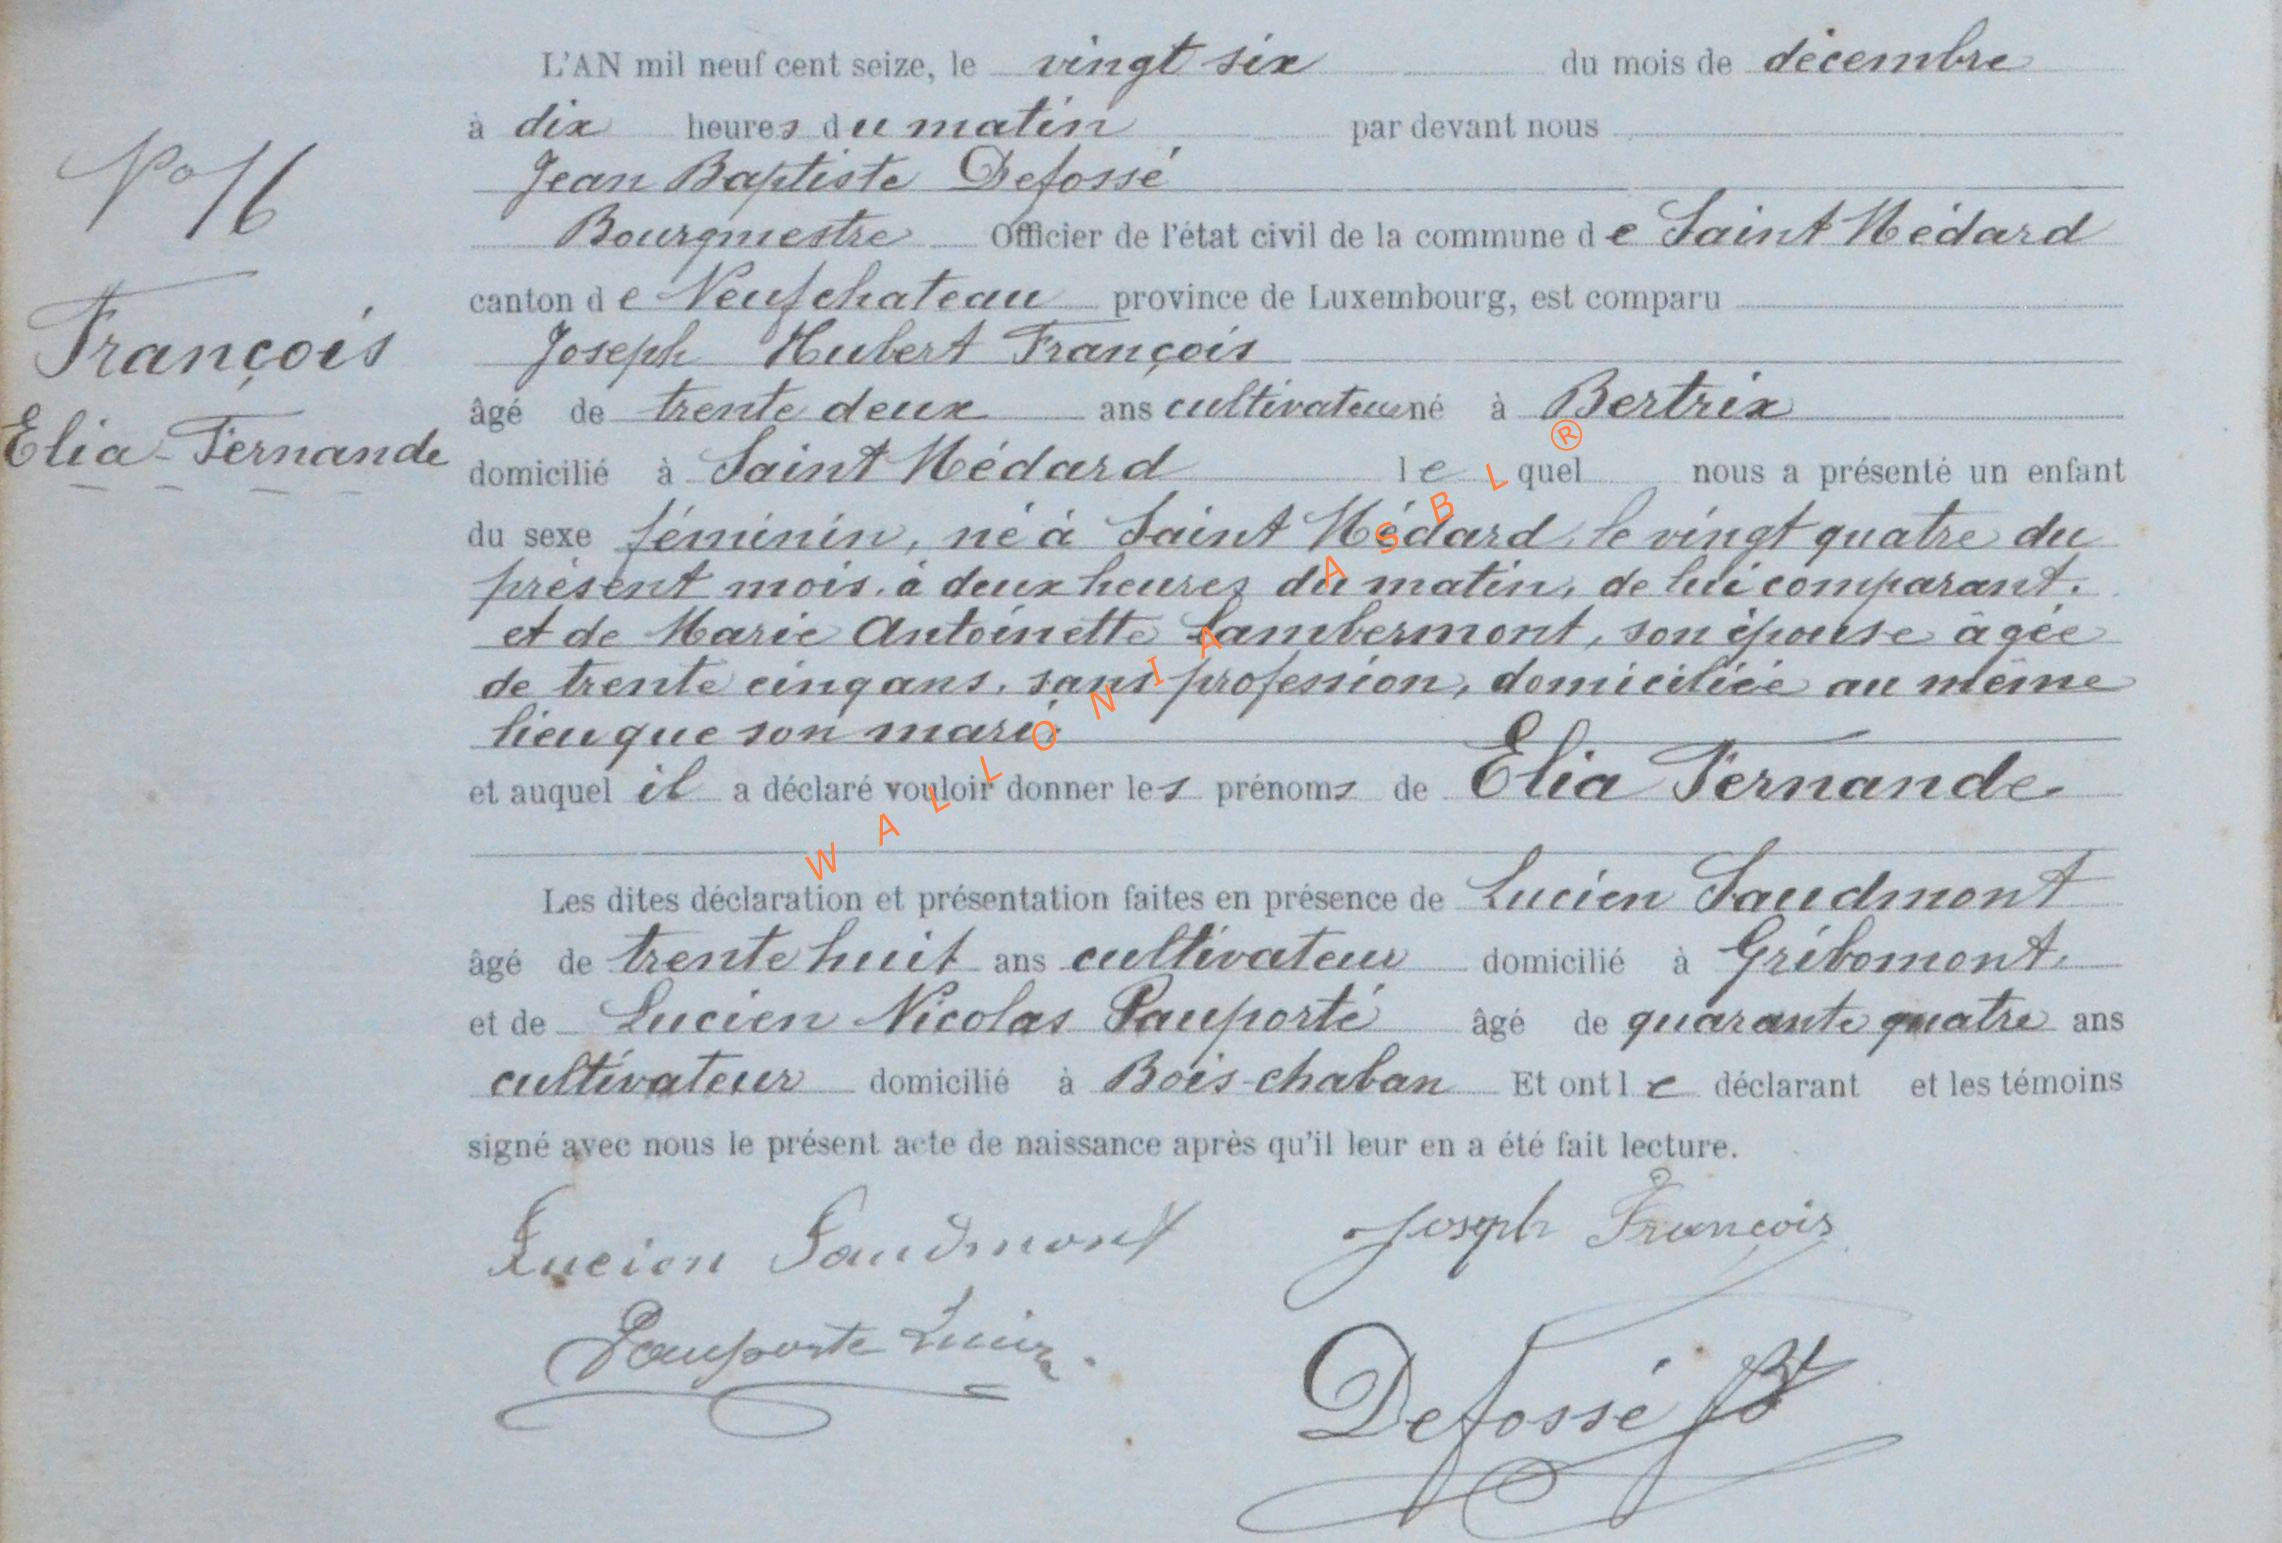 N° 16
François
Elia-Fernande
L'AN mil neuf cent seize, le vingt six du mois de décembre
à dix heures du matin par devant nous
Jean Baptiste Defossé
Bourgmestre Officier de l'état civil de la commune de Saint Médard
canton de Neufchateau province de Luxembourg, est comparu
Joseph Hubert François
âgé de trente deux ans cultivateur né à Bertrix
domicilié à Saint Médard lequel nous a présenté un enfant
du sexe féminin, né à Saint Médard, le vingt quatre du
présent mois, à deux heures du matin, de lui comparant.
et de Marie Antoinette Lambermont, son épouse âgée
de trente cinq ans, sans profession, domiciliée au même
lieu que son mari.
et auquel il a déclaré vouloir donner les prénoms de Elia Fernande.
Les dites déclaration et présentation faites en présence de Lucien Saudmont
âgé de trente huit ans cultivateur domicilié à Gribomont.
et de Lucien Nicolas Pauporté âgé de quarante quatre ans
cultivateur domicilié à Bois-chaban Et ont le déclarant et les témoins
signé avec nous le présent acte de naissance après qu'il leur en a été fait lecture.
Lucien Saudmont Joseph François
Pauporte Lucien.
Defossé JBt
WALLONIA ASBL ®